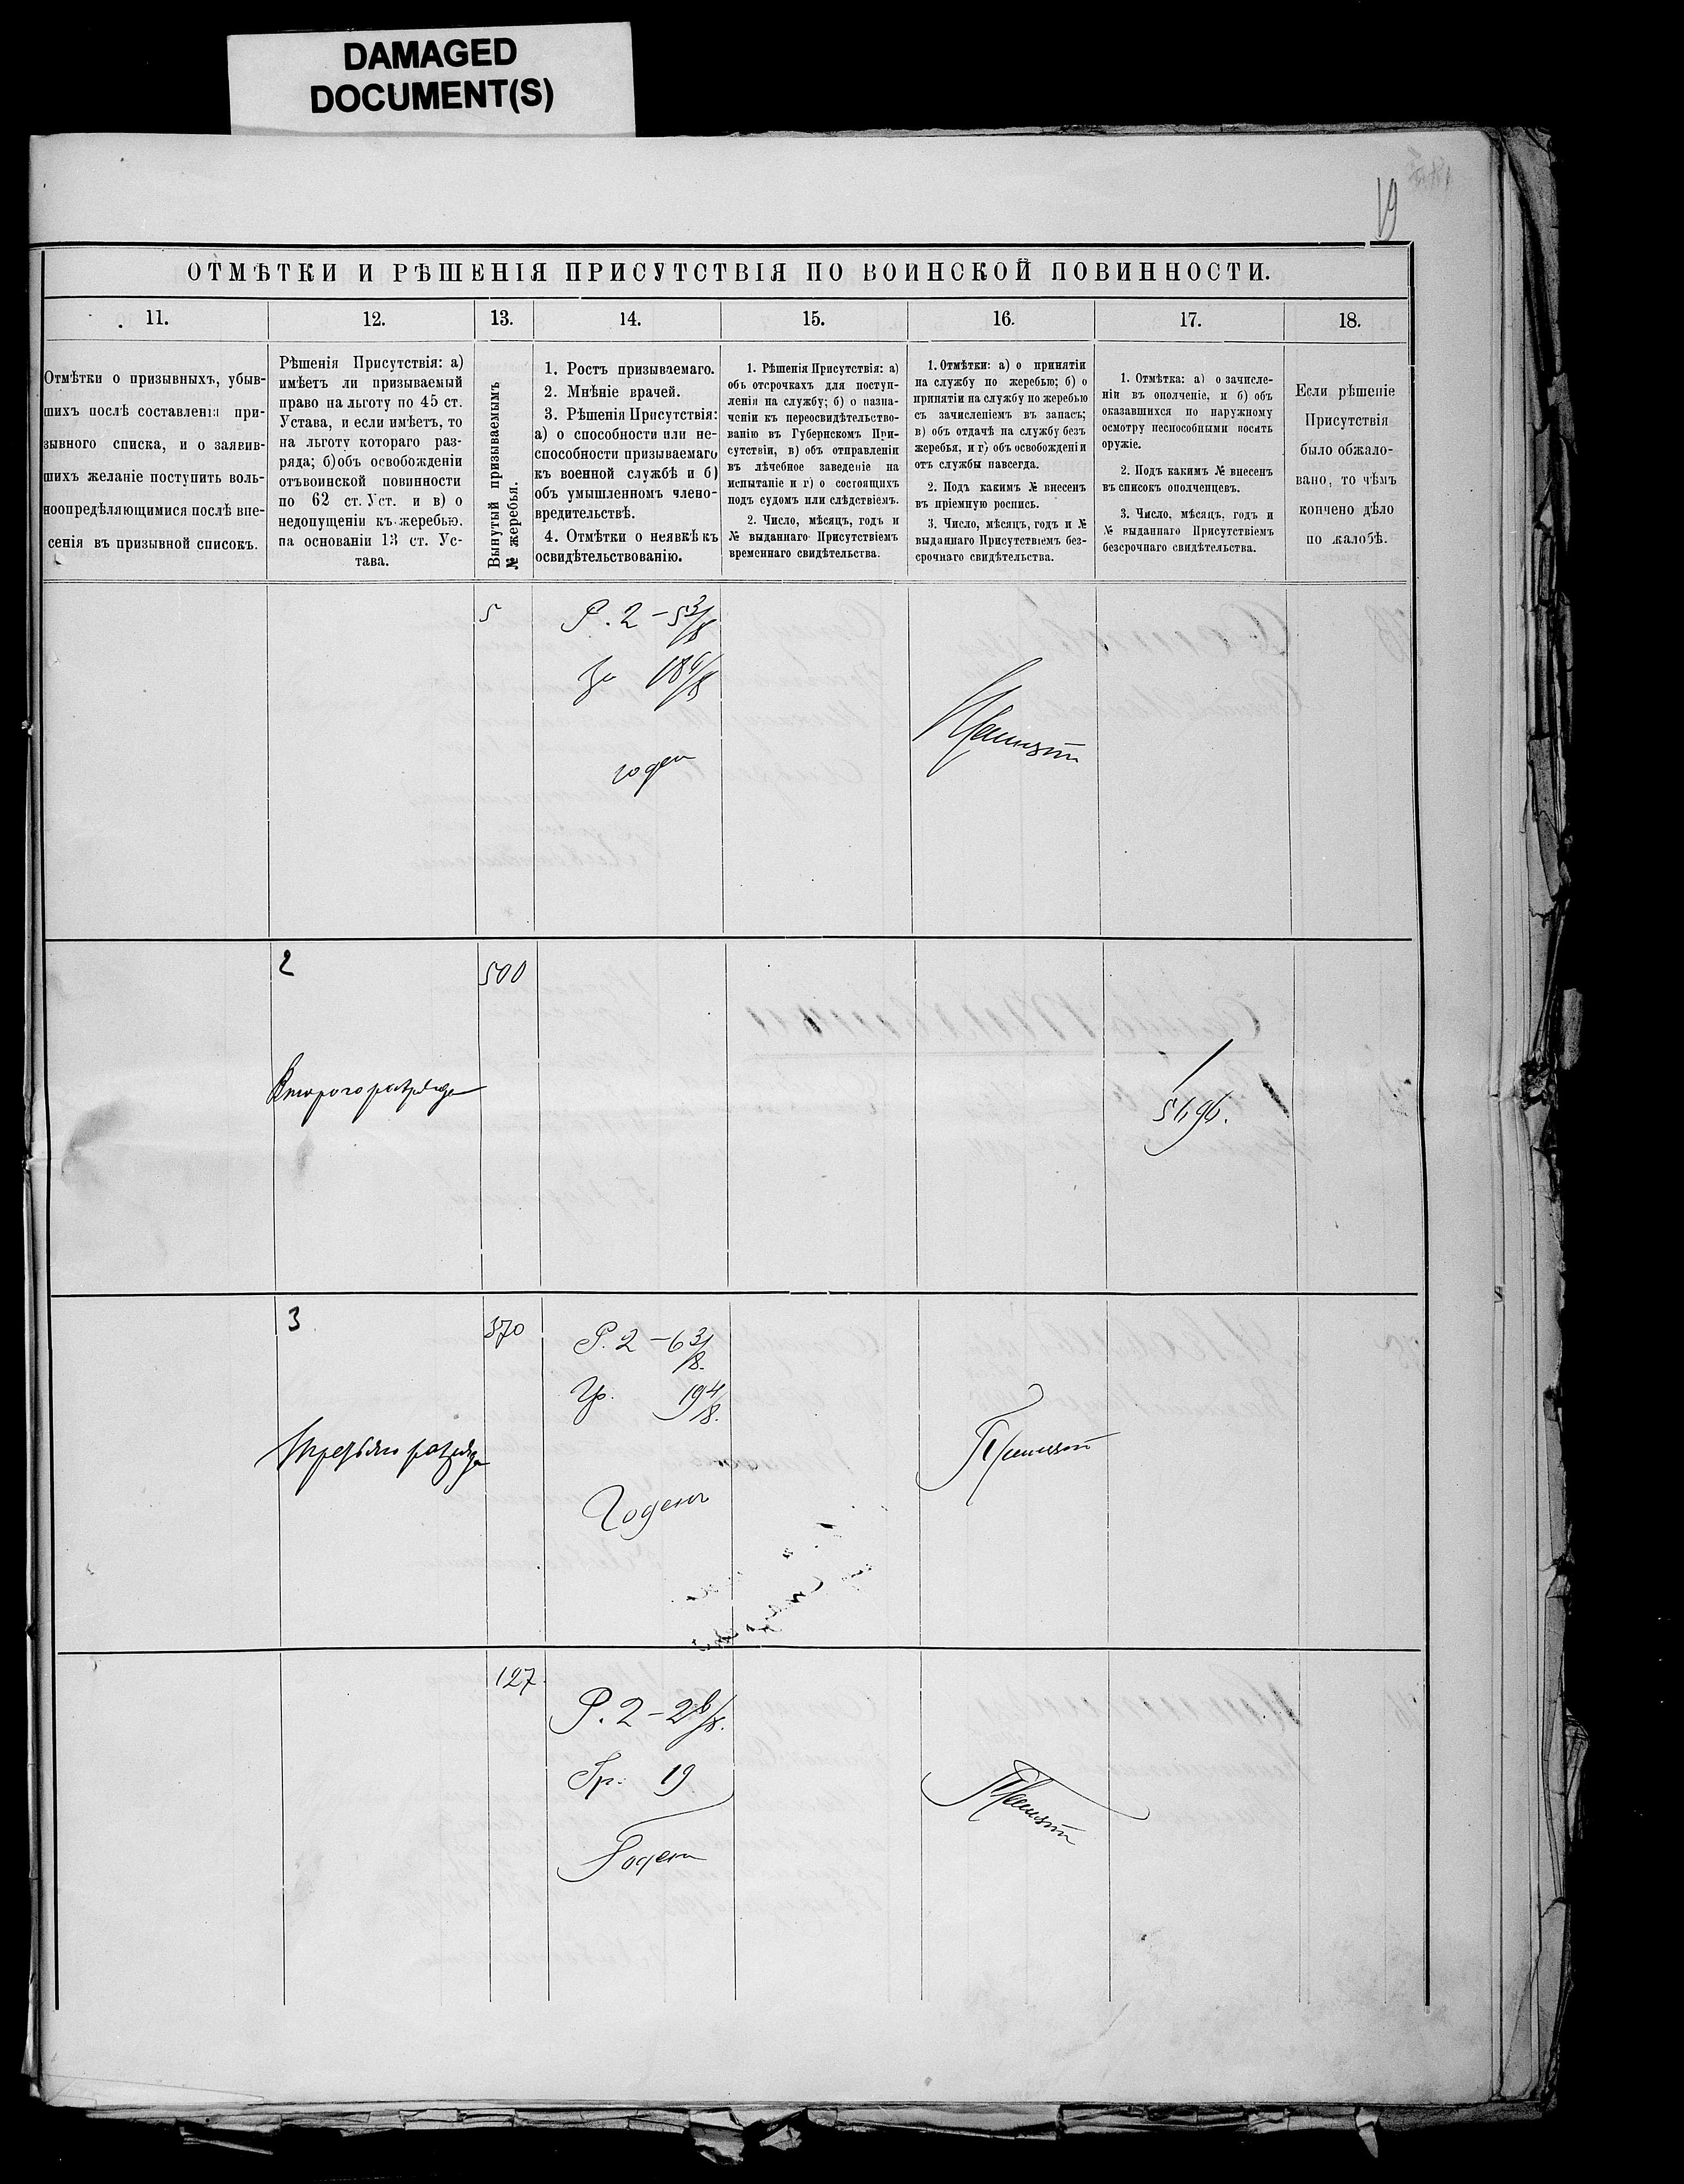 DAMAGED
DOCUMENT(S)
19
ОТМѢТКИ И РѢШЕНІЯ ПРИСУТСТВІЯ ПО ВОИНСКОЙ ПОВИННОСТИ.
11.
12.
13.
14.
15.
16.
17.
18.
Отмѣтки о призывныхъ, убыв-
шихъ послѣ составленія при-
зывного списка, и о заявив-
шихъ желаніе поступить воль-
ноопредѣляющимися послѣ вне-
сенія въ призывной списокъ.
Рѣшенія Присутствія: а)
имѣетъ ли призываемый
право на льготу по 45 ст.
Устава, и если имѣетъ, то
на льготу котораго раз-
ряда; б) объ освобожденіи
отъ воинской повинности
по 62 ст. Уст. и в) о
недопущеніи къ жеребью.
на основаніи 13 ст. Ус-
тава.
Вынутый призываемымъ
№ жеребья.
1. Ростъ призываемаго.
2. Мнѣніе врачей.
3. Рѣшенія Присутствія:
а) о способности или не-
способности призываемаго
къ военной службѣ и б)
объ умышленномъ члено-
вредительствѣ.
4. Отмѣтки о неявкѣ къ
освидѣтельствованію.
1. Рѣшенія Присутствія: а)
объ отсрочкахъ для поступ-
ленія на службу; б) о назна-
ченіи къ переосвидѣтельство-
ванію въ Губернскомъ При-
сутствіи, в) объ отправленіи
въ лѣчебное заведеніе на
испытаніе и г) о состоящихъ
подъ судомъ или слѣдствіемъ.
2. Число, мѣсяцъ, годъ и
№ выданнаго Присутствіемъ
временнаго свидѣтельства.
1. Отмѣтки: а) о принятіи
на службу по жеребью; б) о
принятіи на службу по жеребью
съ зачисленіемъ въ запасъ;
в) объ отдачѣ на службу безъ
жеребья, и г) объ освобожденіи
отъ службы навсегда.
2. Подъ какимъ № внесенъ
въ пріемную роспись.
3. Число, мѣсяцъ, годъ и №
выданнаго Присутствіемъ без-
срочнаго свидѣтельства.
1. Отмѣтка: а) о зачисле-
ніи въ ополченіе, и б) объ
оказавшихся по наружному
осмотру неспособными носить
оружіе.
2. Подъ какимъ № внесенъ
въ списокъ ополченцевъ.
3. Число, мѣсяцъ, годъ и
№ выданнаго Присутствіемъ
безсрочнаго свидѣтельства.
Если рѣшеніе
Присутствія
было обжало-
вано, то чѣмъ
кончено дѣло
по жалобѣ.
5
Р. 2 – 5 3/8
годен
Принят
2
500
Второго разряда
3
370
Р. 2 – 6 3/8.
Гр. 19 4/8.
Третьяго разряда
Годенъ
Принят
127
Р. 2 – 2 6/8.
Гр. 19
Годен
Принят